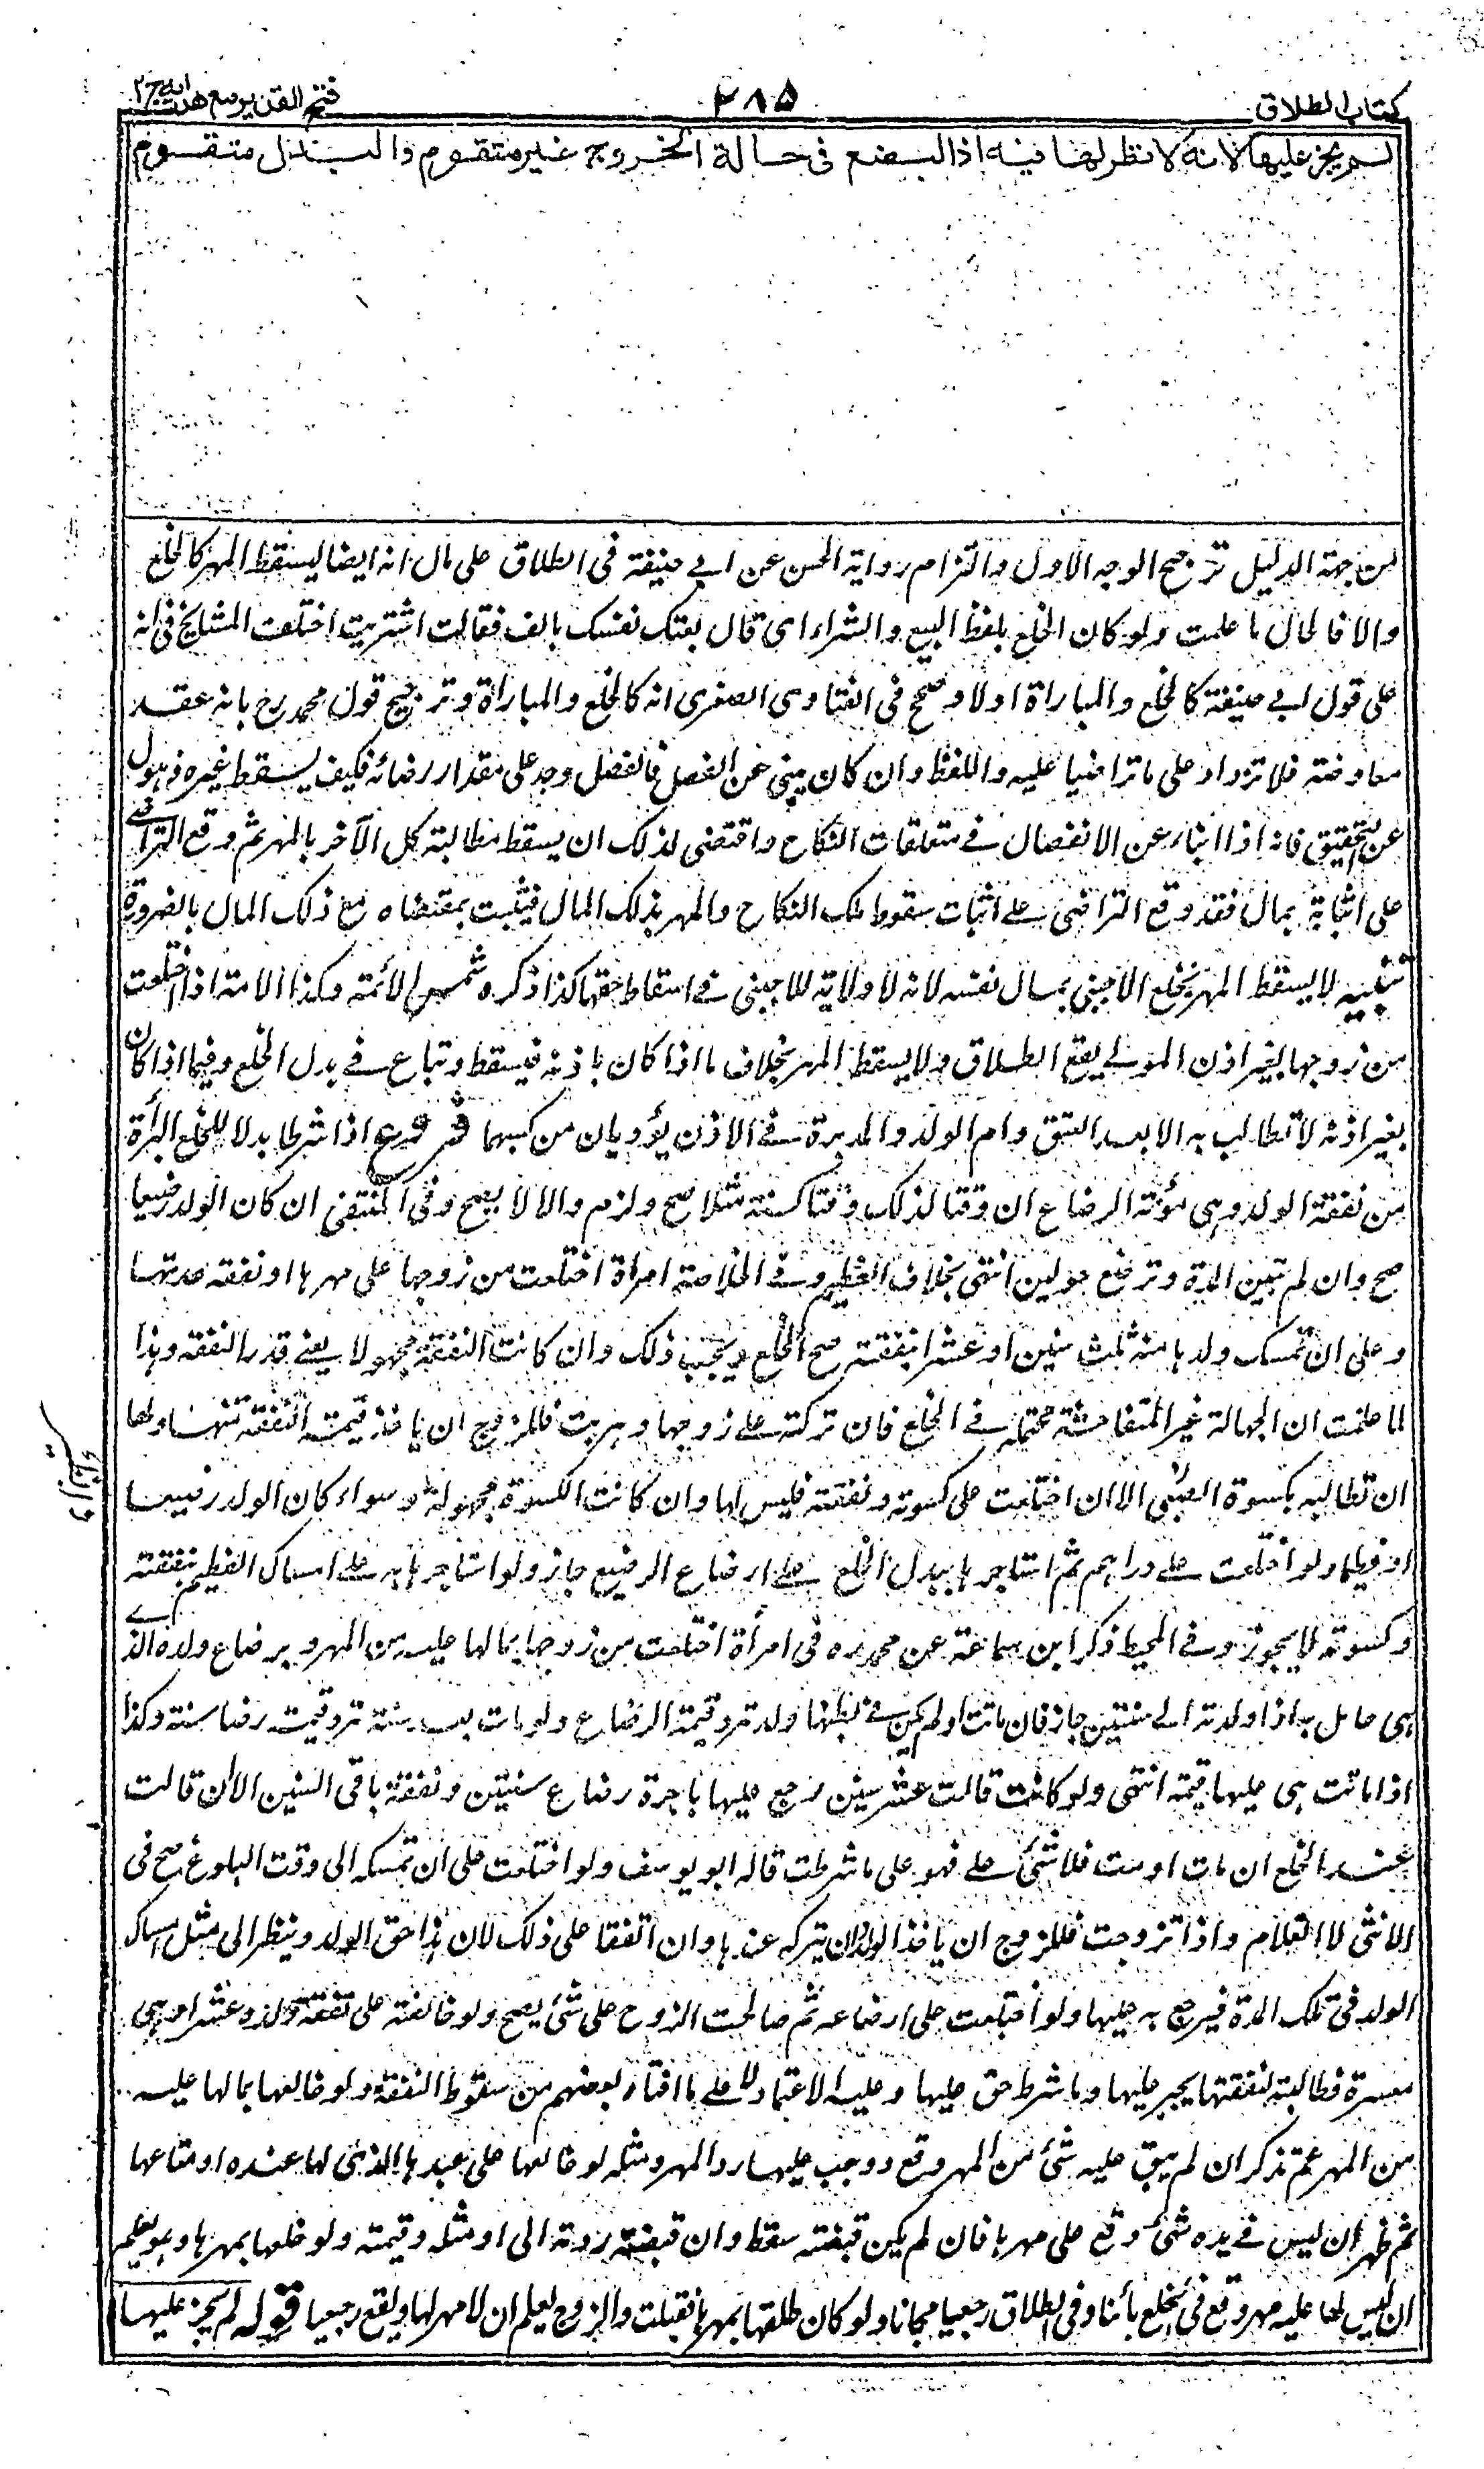 كتاب الطلاق
٢٨٥
فتح القدير مع هدايه ج٢
لم يجز عليها لانه لا نظر لها فيه اذ البضع فى حالة الخروج غير متقوم والبدل متقوم
من جهة الدليل ترجيح الوجه الاول والتزام رواية الحسن عن ابي حنيفة فى الطلاق على مال انه ايضا يسقط المهر كالخلع
والا فالحال ما علمت ولو كان الخلع بلفظ البيع والشراء اى قال بعتك نفسك بالف فقالت اشتريت اختلف المشايخ فى انه
على قول ابي حنيفة كالخلع والمباراة اولا وصحح فى الفتاوى الصغرى انه كالخلع والمباراة وترجيح قول محمد رح بانه عقد
معاوضة فلا تزداد على ما تراضيا عليه واللفظ وان كان ينبئ عن الفصل فالفصل وجد على مقدار رضائه فكيف يسقط غيره ذهول
عن التحقيق فانه اذا انباء عن الانفصال فى متعلقات النكاح واقتضى لذلك ان يسقط مطالبة كل الآخر بالمهر ثم وقع التراضى
على اثباته بمال فقد وقع التراضى على اثبات سقوط ملك النكاح والمهر بذلك المال فيثبت بمقتضاه مع ذلك المال بالضرورة
تنبيه لا يسقط المهر بخلع الاجنبى بمال نفسه لانه لا ولاية للاجنبى فى اسقاط حقها كذا ذكره شمس الائمة وكذا الامة اذا اختلعت
من زوجها بغير اذن المولى يقع الطلاق ولا يسقط المهر بخلاف ما اذا كان باذنه فيسقط وتباع فى بدل الخلع وفيما اذا كان
بغير اذنه لا تطالب به الا بعد العتق وام الولد والمدبرة فى الاذن يؤديان من كسبهما فروع اذا شرطا بدلا للخلع البرأة
من نفقة الولد وهى مؤنة الرضاع ان وقتا لذلك وقتا كسنة مثلا صح ولزم والا لا يصح وفى المنتقى ان كان الولد رضيعا
صح وان لم تبين المدة وترضع حولين انتهى بخلاف الفطيم وفى الخلاصة امرأة اختلعت من زوجها على مهرها ونفقة عدتها
وعلى ان تمسك ولدها منه ثلث سنين او عشرا بنفقته صح الخلع ويجب ذلك وان كانت النفقة مجهولا يعنى قدر النفقة وهذا
لما علمت ان الجهالة غير المتفاحشة محتملة فى الخلع فان تركته على زوجها وهربت فللزوج ان ياخذ قيمة النفقة منها ولها
ان تطالبه بكسوة الصبى الا ان اختلعت على كسوته ونفقته فليس لها وان كانت الكسوة مجهولة وسواء كان الولد رضيعا
او فطيما ولو اختلعت على دراهم ثم استاجرها ببدل الخلع على ارضاع الرضيع جاز ولو استاجرها به على امساك الفطيم بنفقته
وكسوته لا يجوز وفى المحيط ذكر ابن سماعة عن محمد ره فى امرأة اختلعت من زوجها بما لها عليه من المهر وبرضاع ولده الذى
هى حامل به اذا ولدته الى سنتين جاز فان مات او لم يكن فى بطنها ولد ترد قيمة الرضاع ولو مات بعد سنة ترد قيمة رضاع سنة وكذا
اذا ماتت هى عليها قيمته انتهى ولو كانت قالت عشر سنين رجع عليها باجرة رضاع سنتين ونفقة باقى السنين الا ان قالت
عند الخلع ان مات او مت فلا شئ على فهو على ما شرطت قاله ابو يوسف ولو اختلعت على ان تمسكه الى وقت البلوغ صح فى
الانثى لا الغلام واذا تزوجت فللزوج ان ياخذ الولد لان يتركه عندها وان اتفقا على ذلك لان هذا حق الولد وينظر الى مثل امساك
الولد فى تلك المدة فيرجع به عليها ولو اختلعت على ارضاعه ثم صالحت الزوج على شئ يصح ولو خالعته على نفقة ولده عشرا وهى
معسرة فطالبته بنفقتها يجبر عليها وما شرط حق عليها وعليه الاعتماد لا على ما افتاه بعضهم من سقوط النفقة ولو خالعها بما لها عليه
من المهر ثم تذكر ان لم يبق عليه شئ من المهر وقع ووجب عليها رد المهر ومثله لو خالعها على عبدها الذى لها عنده او متاعها
ثم ظهر ان ليس فى يده شئ وقع على مهرها فان لم يكن قبضته سقط وان قبضته ردته الى او مثله وقيمته ولو خلعها بمهرها وهو يعلم
ان ليس لها عليه مهر وقع فى الخلع بائنا وفى الطلاق رجعيا مجانا ولو كان طلقها بمهرها فقبلت والزوج يعلم ان لا مهر لها ويقع رجعيا قوله لم يجز عليها